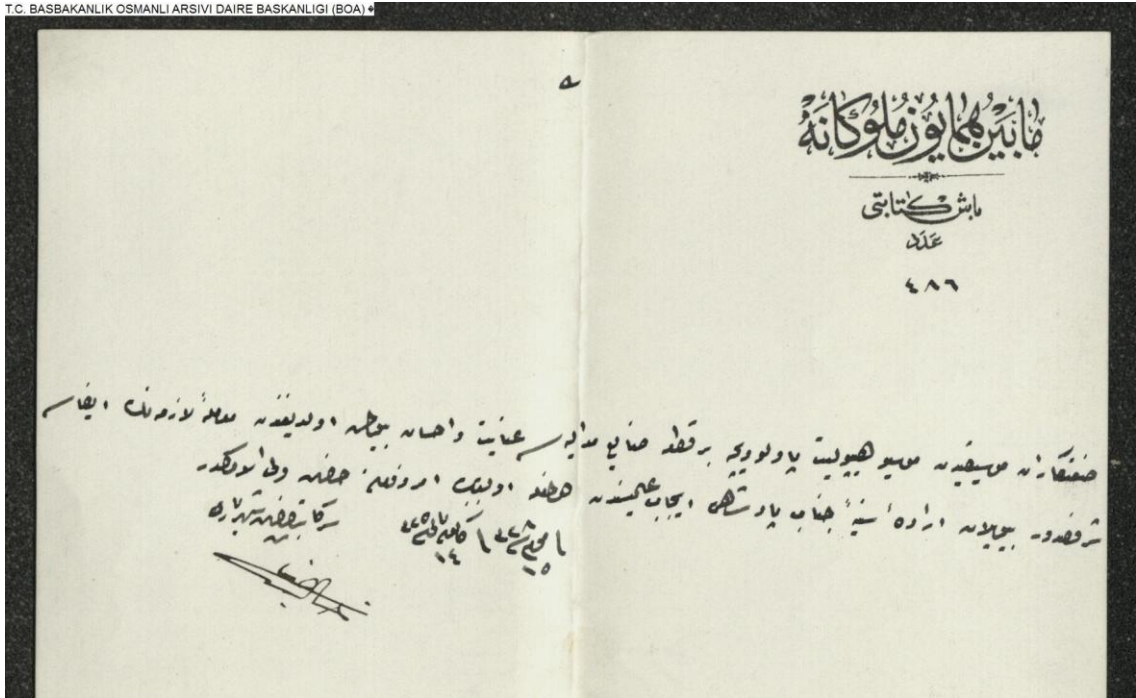 T.C. BASBAKANLIK OSMANLI ARSIVI DAIRE BASKANLIGI (BOA) �
مابين همايون ملوكانه
باش كتابتى
عدد
٤٨٦
صنعتكاران موسيقيدن موسيو هيپوليت پاولوويچه بر قطعه صنايع مداليه سى عنايت و احسان بيورلمش اولديغندن معامله لازمه نك ايفاسى
شرفصدور بيوريلان اراده سنيه جناب پادشاهى ايجاب عاليسندن اولمغله اولبابده امر و فرمان حضرت ولى الامركدر
١٥ محرم ٣٢٨ ١٤ كانون ثانى ٣٢٥
سركاتب حضرت شهريارى